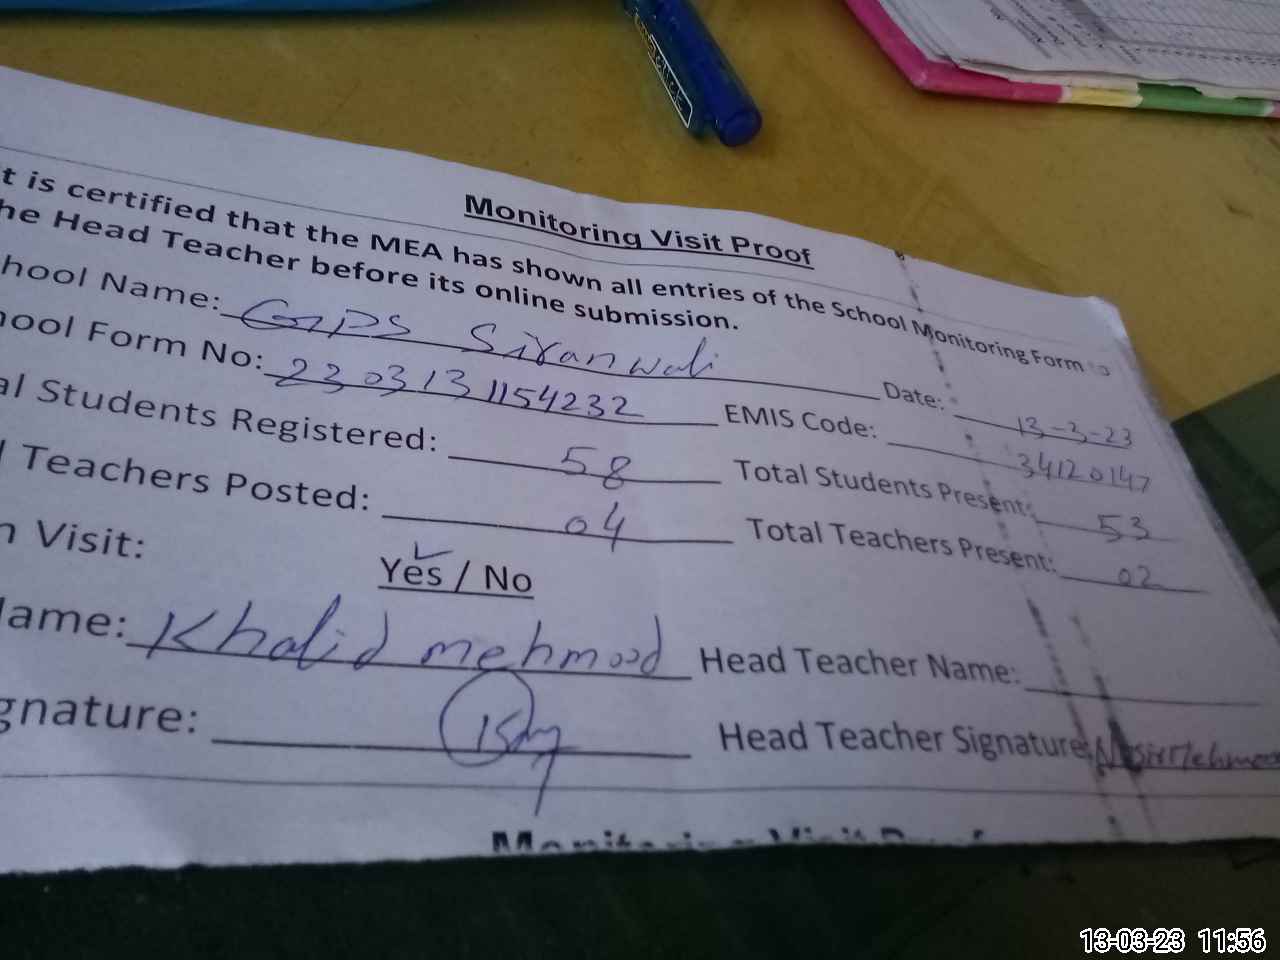 Monitoring Visit Proof
t is certified that the MEA has shown all entries of the School Monitoring Form to
he Head Teacher before its online submission.
hool Name: GPS Siranwali Date: 13-3-23
hool Form No: 2303131154232 EMIS Code: 34120147
al Students Registered: 58 Total Students Present: 53
l Teachers Posted: 04 Total Teachers Present: 02
n Visit: Yes / No
Name: Khalid mehmood Head Teacher Name:
gnature: Head Teacher Signature: Nasir Mehmood
Monitoring Visit Proof
13-03-23 11:56